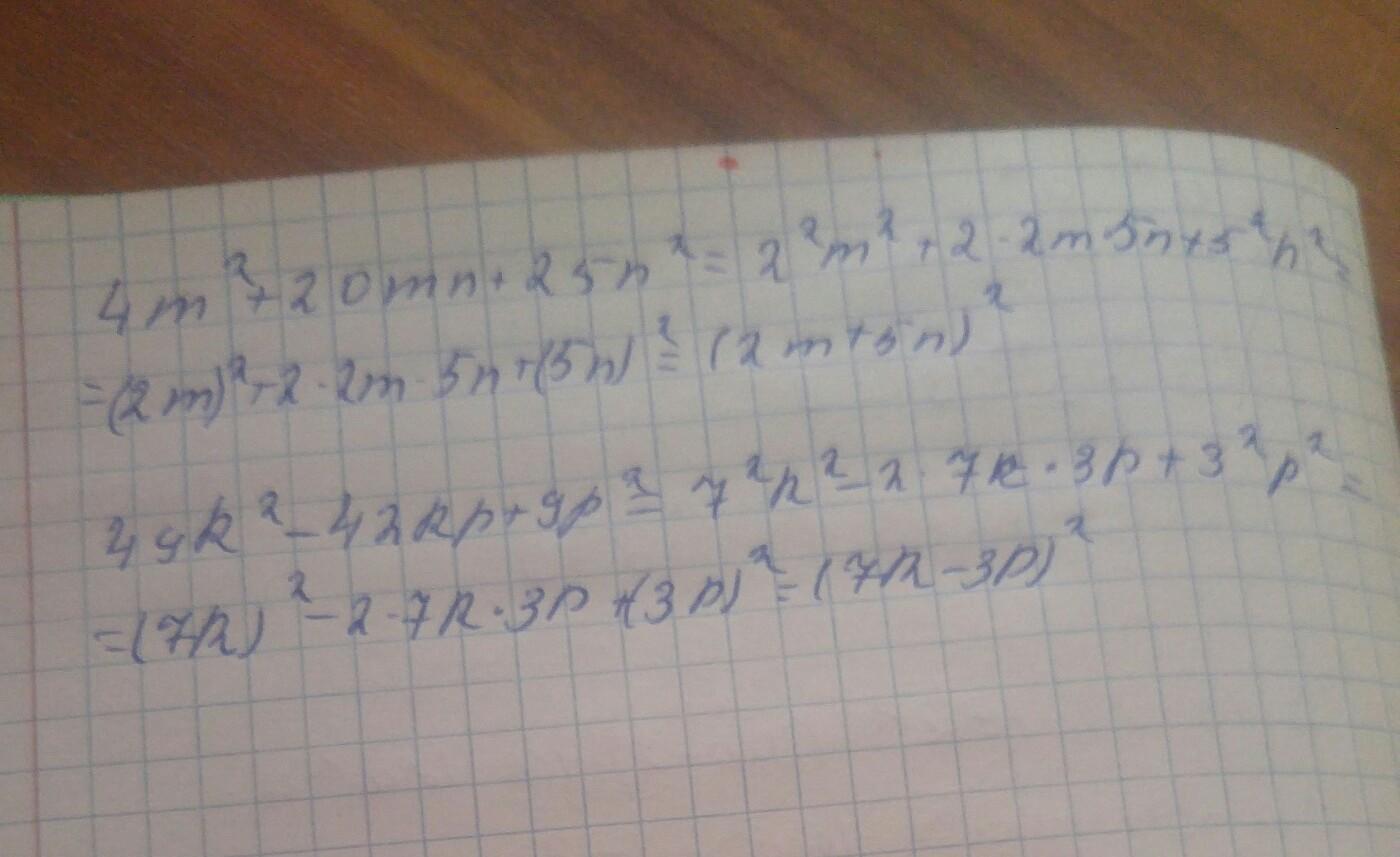 4m²+20mn+25n²=2²m²+2·2m·5n+5²n²=
=(2m)²+2·2m·5n+(5n)²=(2m+5n)²
49k²-42kp+9p²=7²k²-2·7k·3p+3²p²=
=(7k)²-2·7k·3p+(3p)²=(7k-3p)²